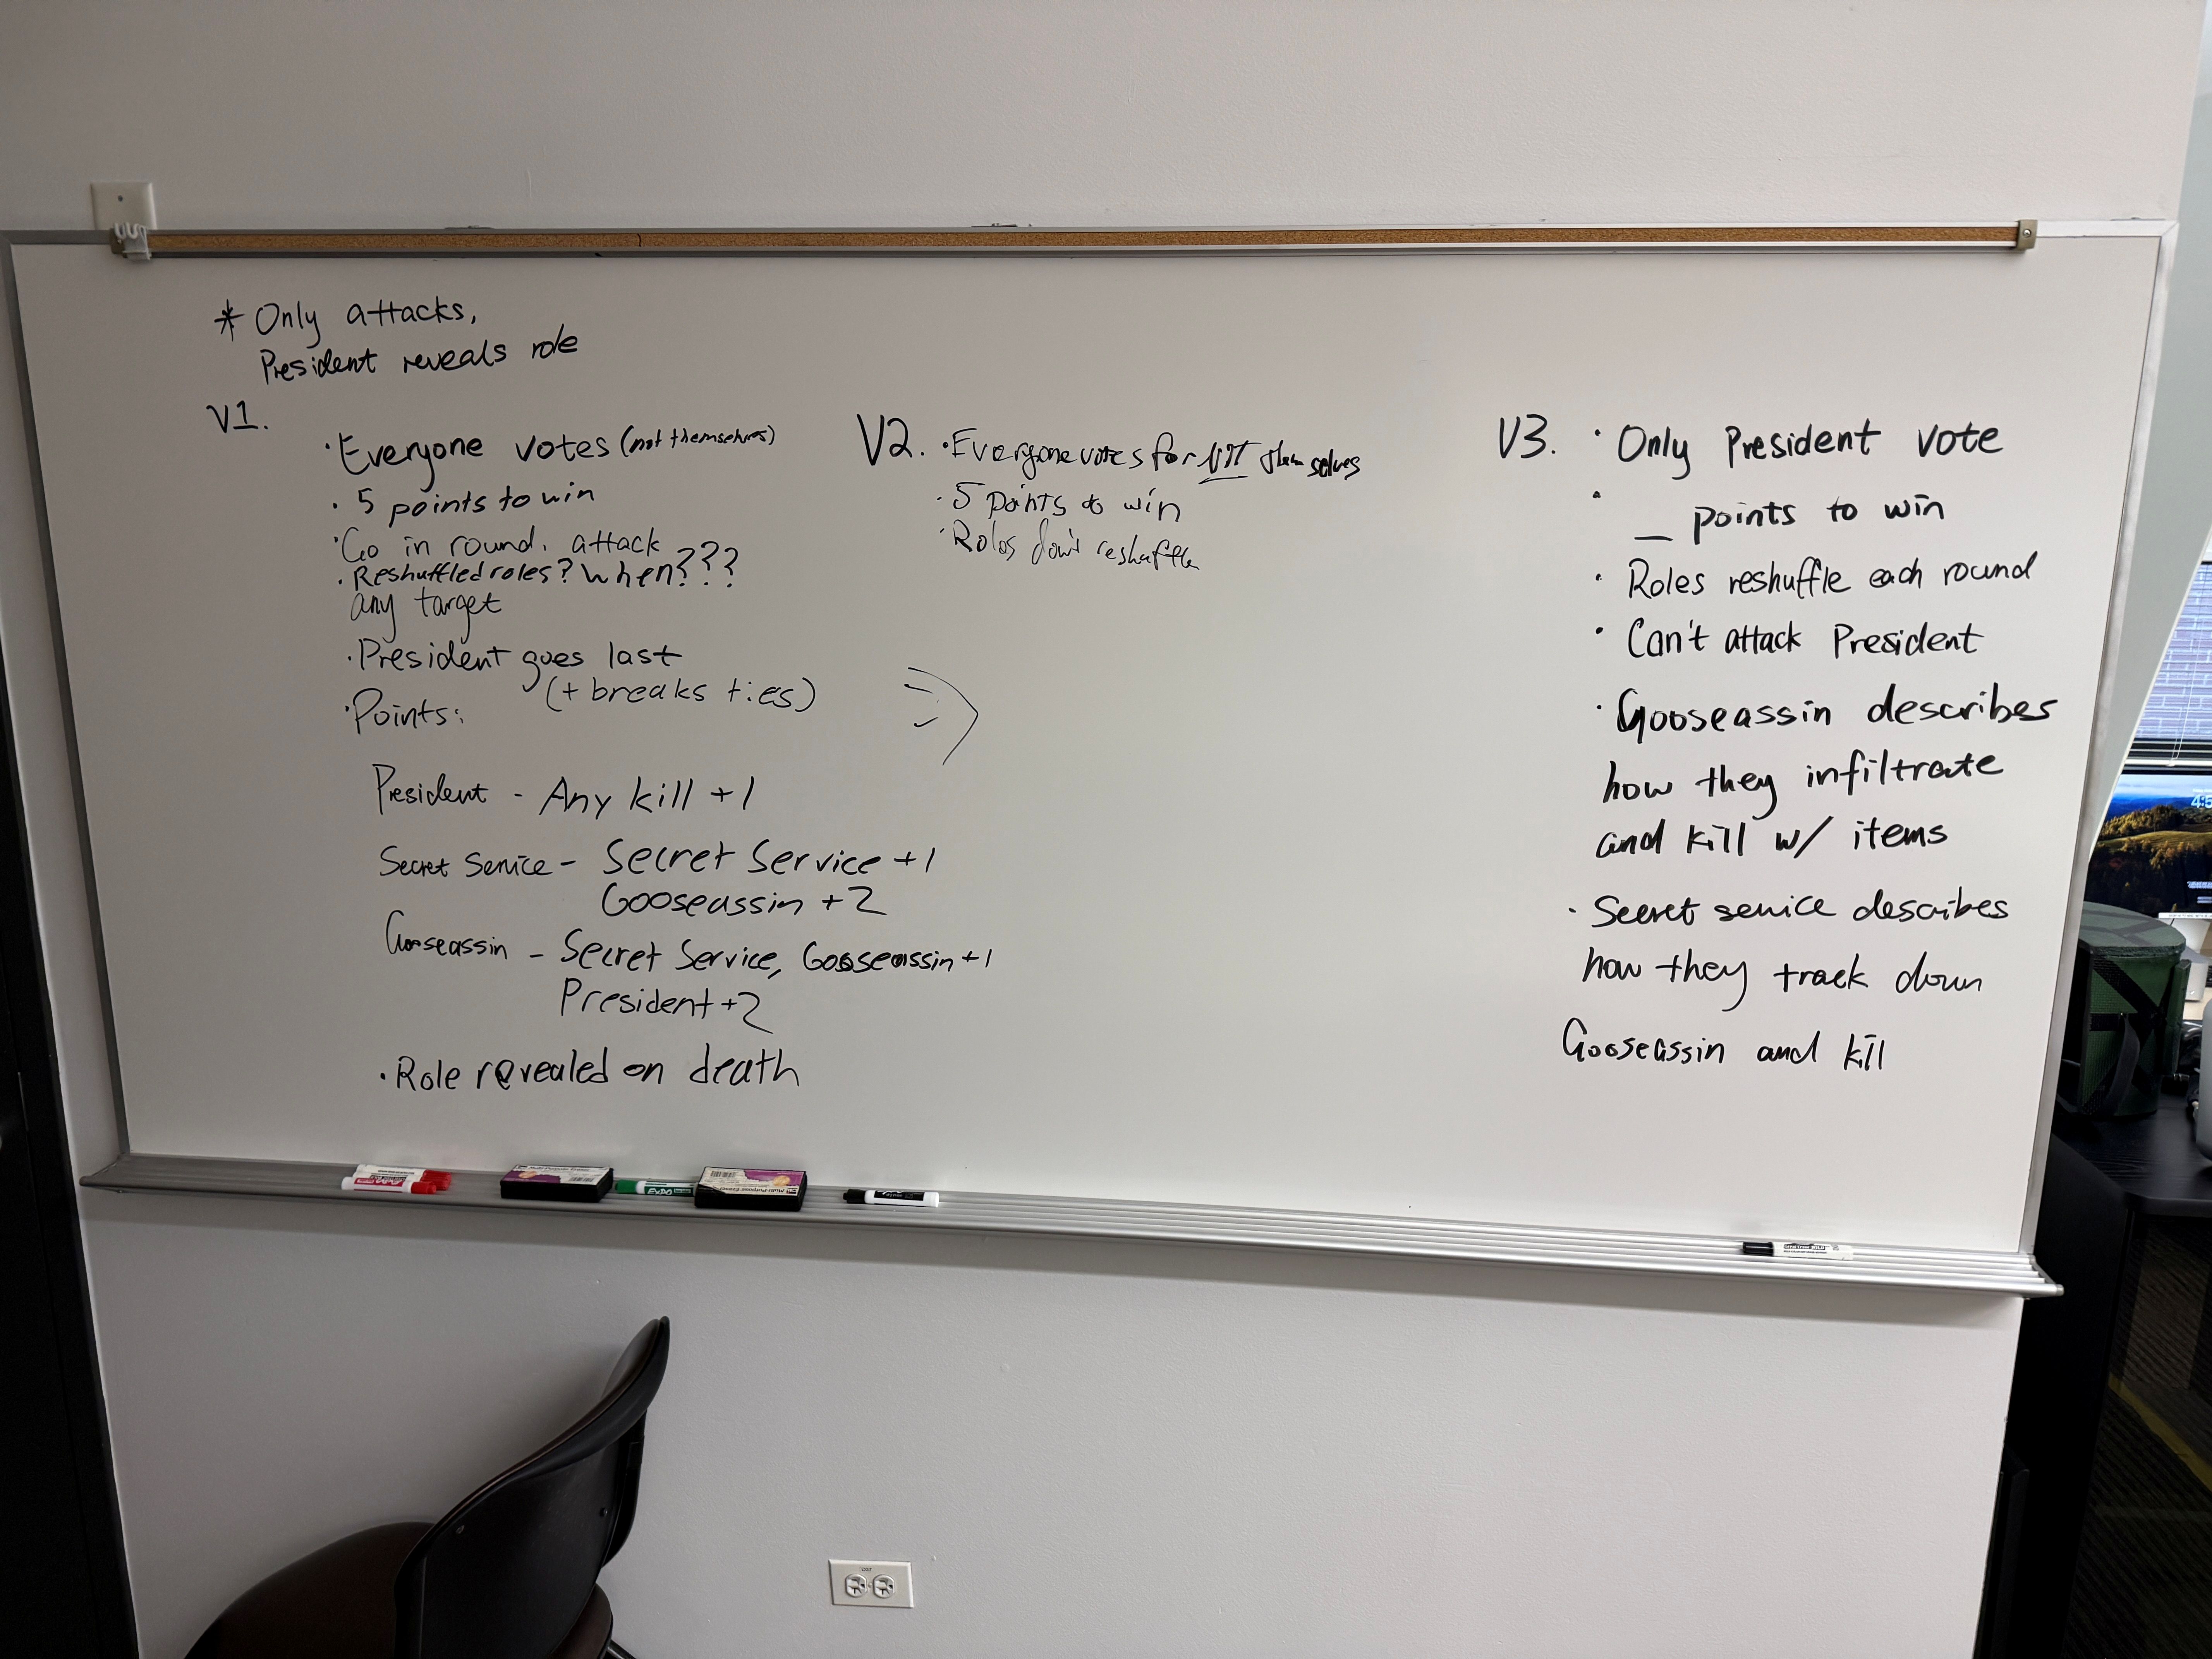 * Only attacks,
President reveals role
V1.
· Everyone votes (not themselves)
· 5 points to win
· Go in round, attack
· Reshuffled roles? When???
any target
· President goes last
(+ breaks ties)
· Points:
President - Any kill +1
Secret Service - Secret Service +1
Gooseassin +2
Gooseassin - Secret Service, Gooseassin +1
President +2
· Role revealed on death
V2. · Everyone votes for NOT themselves
· 5 points to win
· Roles don't reshuffle
V3. · Only President vote
· _ points to win
· Roles reshuffle each round
· Can't attack President
· Gooseassin describes
how they infiltrate
and kill w/ items
· Secret service describes
how they track down
Gooseassin and kill
EXPO